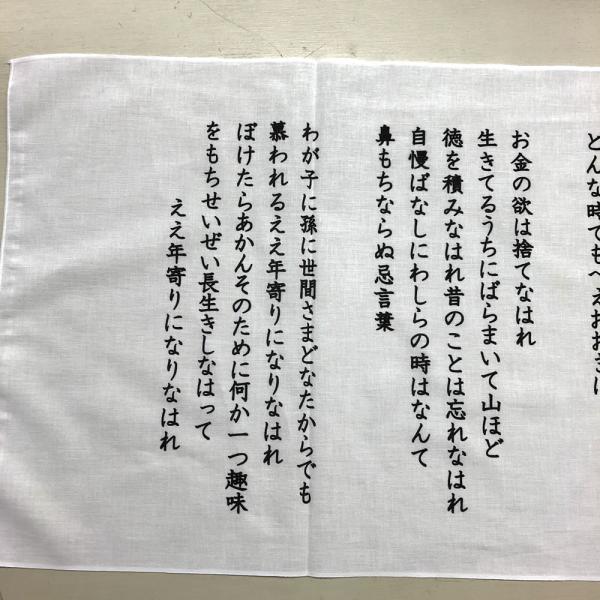 どんな時でもへえおおきに
お金の欲は捨てなはれ
生きてるうちにばらまいて山ほど
徳を積みなはれ昔のことは忘れなはれ
自慢ばなしにわしらの時はなんて
鼻もちならぬ忌言葉
わが子に孫に世間さまどなたからでも
慕われるええ年寄りになりなはれ
ぼけたらあかんそのために何か一つ趣味
をもちせいぜい長生きしなはって
ええ年寄りになりなはれ